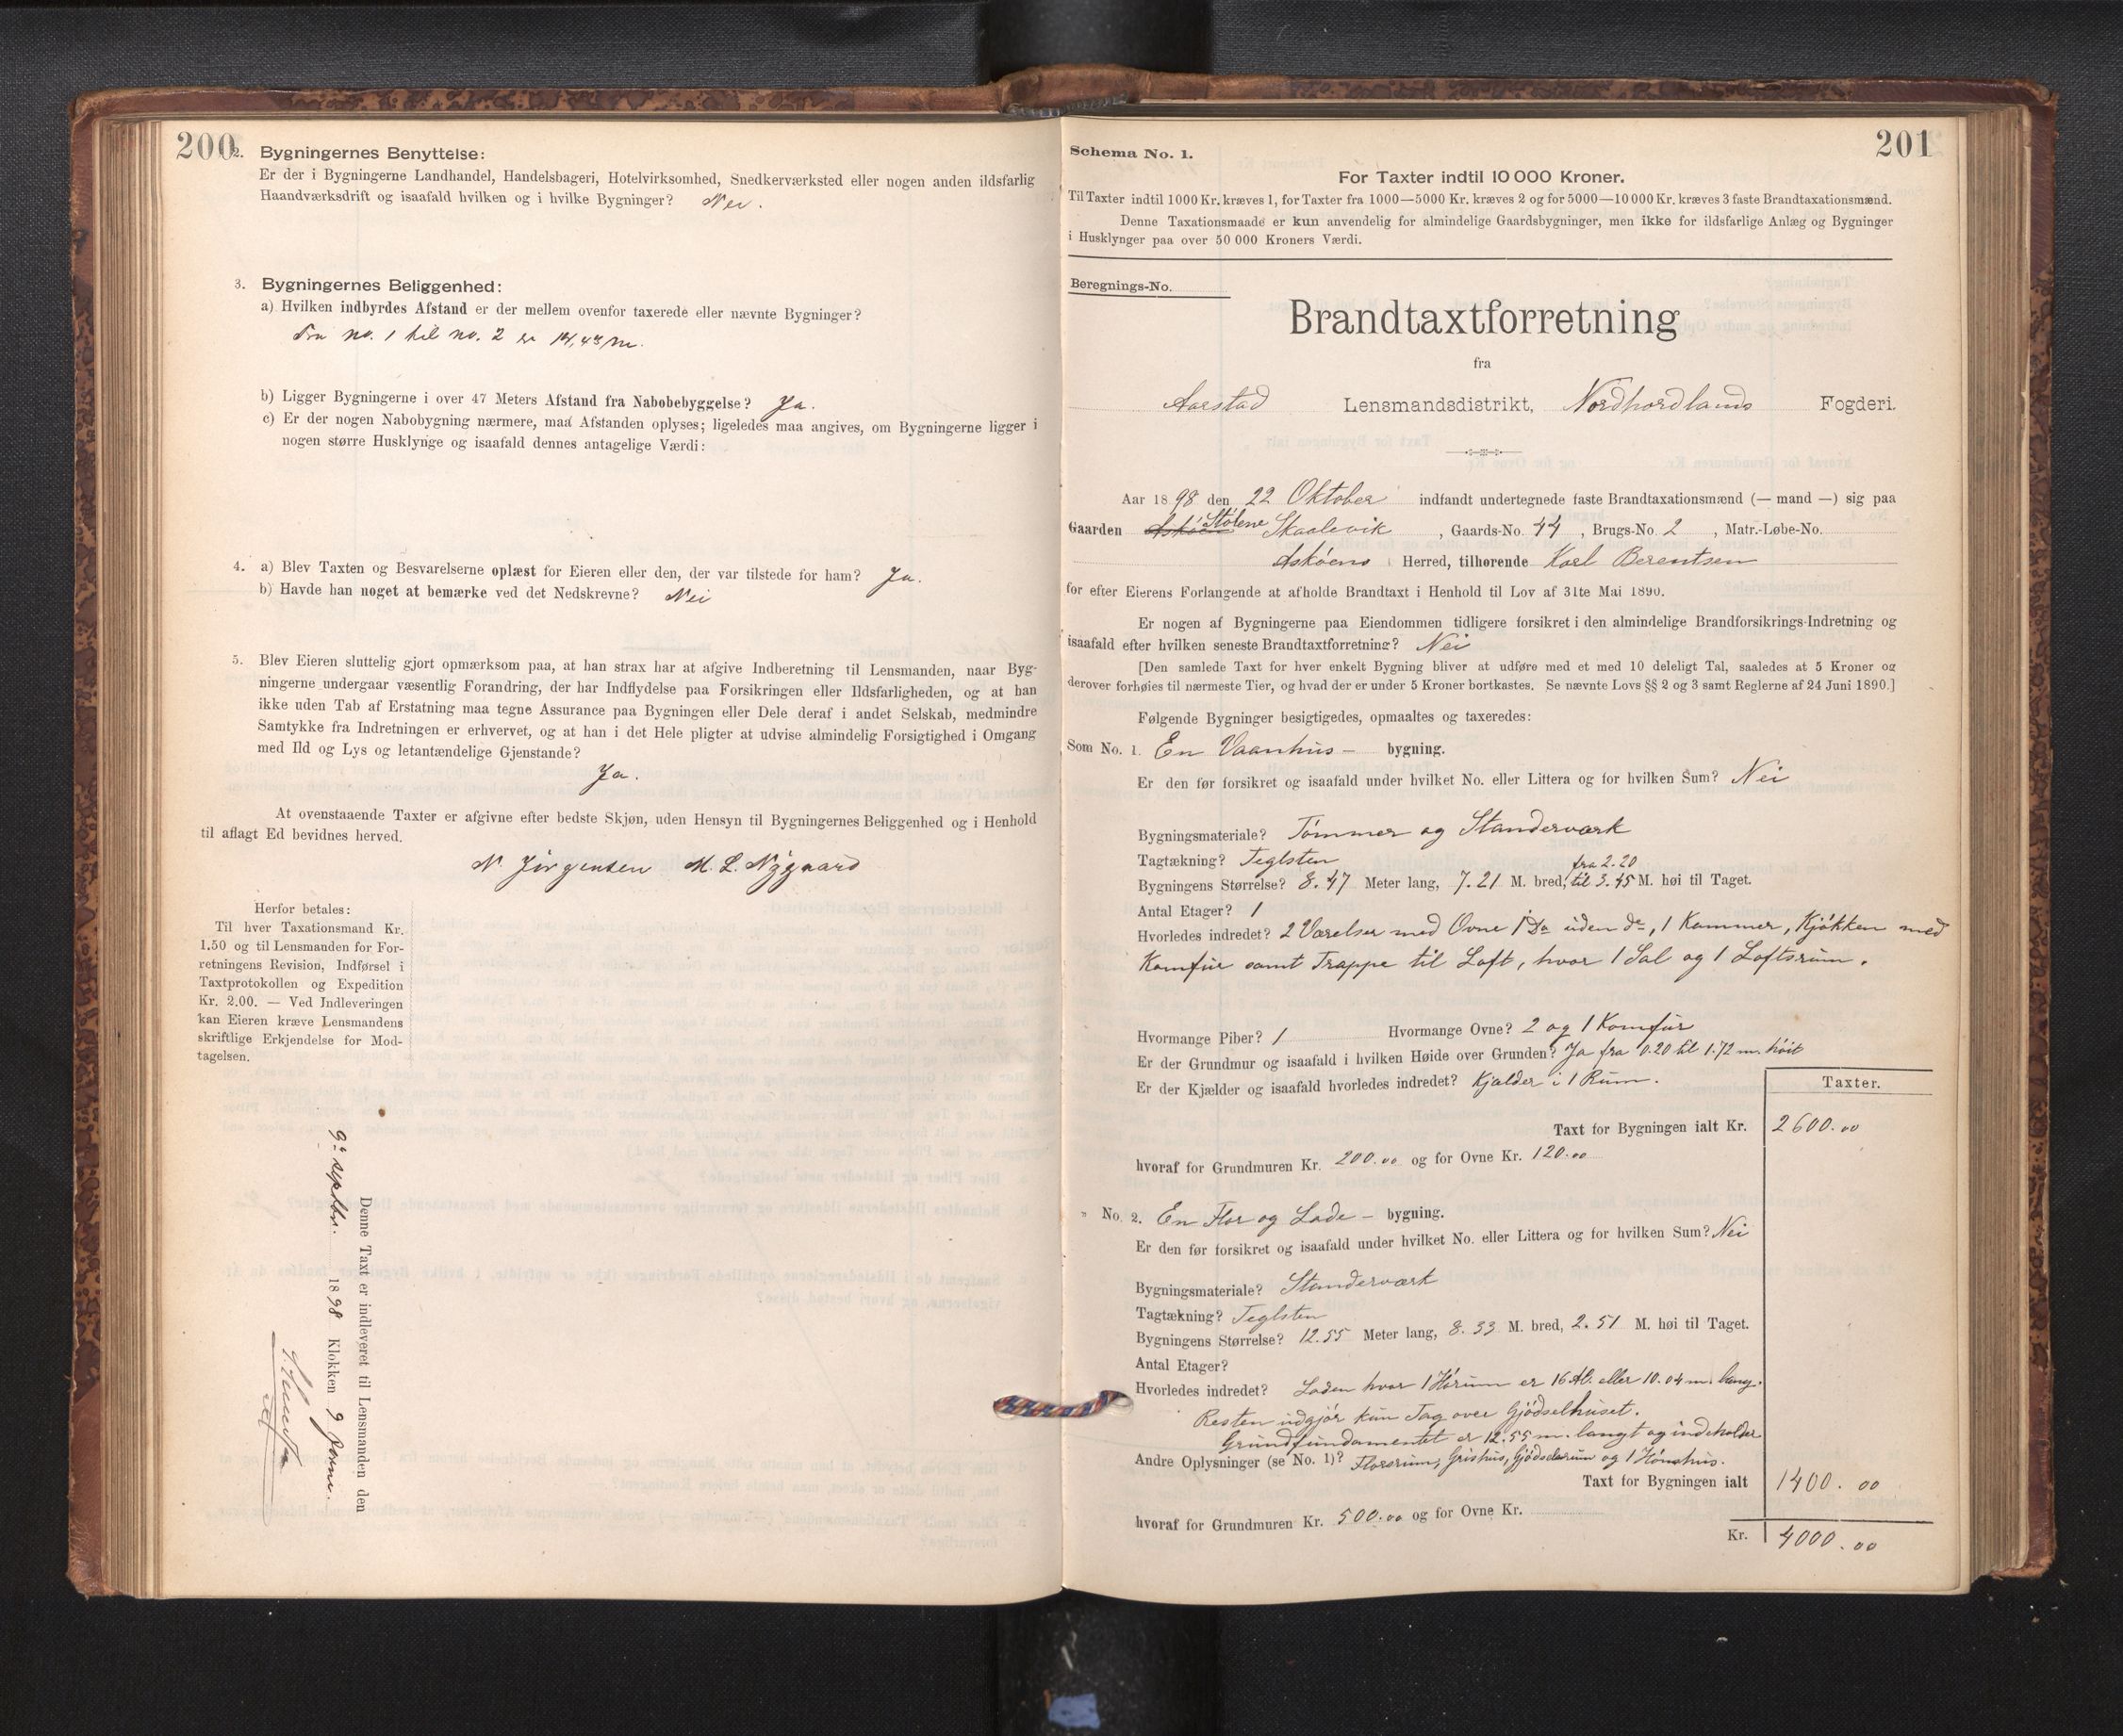 200
2. Bygningernes Benyttelse:
Er der i Bygningerne Landhandel, Handelsbageri, Hotelvirksomhed, Snedkerværksted eller nogen anden ildsfarlig
Haandværksdrift og isaafald hvilken og i hvilke Bygninger? Nei.
3. Bygningernes Beliggenhed:
a) Hvilken indbyrdes Afstand er der mellem ovenfor taxerede eller nævnte Bygninger?
Fra no. 1 til no. 2 er 14,43 m.
b) Ligger Bygningerne i over 47 Meters Afstand fra Nabobebyggelse? Ja.
c) Er der nogen Nabobygning nærmere, maa Afstanden oplyses; ligeledes maa angives, om Bygningerne ligger i
nogen større Husklynge og isaafald dennes antagelige Værdi:
4. a) Blev Taxten og Besvarelserne oplæst for Eieren eller den, der var tilstede for ham? Ja.
b) Havde han noget at bemærke ved det Nedskrevne? Nei
5. Blev Eieren sluttelig gjort opmærksom paa, at han strax har at afgive Indberetning til Lensmanden, naar Byg-
ningerne undergaar væsentlig Forandring, der har Indflydelse paa Forsikringen eller Ildsfarligheden, og at han
ikke uden Tab af Erstatning maa tegne Assurance paa Bygningen eller Dele deraf i andet Selskab, medmindre
Samtykke fra Indretningen er erhvervet, og at han i det Hele pligter at udvise almindelig Forsigtighed i Omgang
med Ild og Lys og letantændelige Gjenstande?
Ja.
At ovenstaaende Taxter er afgivne efter bedste Skjøn, uden Hensyn til Bygningernes Beliggenhed og i Henhold
til aflagt Ed bevidnes herved.
N. Jørgensen M. L. Nygaard
Herfor betales:
Til hver Taxationsmand Kr.
1.50 og til Lensmanden for For-
retningens Revision, Indførsel i
Taxtprotokollen og Expedition
Kr. 2.00. — Ved Indleveringen
kan Eieren kræve Lensmandens
skriftlige Erkjendelse for Mod-
tagelsen.
Denne Taxt er indleveret til Lensmanden den
9de septbr. 1898 Klokken 9 Form.
201
Schema No. 1.
For Taxter indtil 10 000 Kroner.
Til Taxter indtil 1000 Kr. kræves 1, for Taxter fra 1000—5000 Kr. kræves 2 og for 5000—10000 Kr. kræves 3 faste Brandtaxationsmænd.
Denne Taxationsmaade er kun anvendelig for almindelige Gaardsbygninger, men ikke for ildsfarlige Anlæg og Bygninger
i Husklynger paa over 50 000 Kroners Værdi.
Beregnings-No.
Brandtaxtforretning
fra
Aarstad Lensmandsdistrikt, Nordhordlands Fogderi.
Aar 1898 den 22 Oktober indfandt undertegnede faste Brandtaxationsmænd (— mand —) sig paa
Gaarden Askøen Stölene Skaalevik, Gaards-No. 44, Brugs-No. 2, Matr.-Løbe-No.
Askøens Herred, tilhørende Karl Berentsen
for efter Eierens Forlangende at afholde Brandtaxt i Henhold til Lov af 31te Mai 1890.
Er nogen af Bygningerne paa Eiendommen tidligere forsikret i den almindelige Brandforsikrings-Indretning og
isaafald efter hvilken seneste Brandtaxtforretning? Nei
[Den samlede Taxt for hver enkelt Bygning bliver at udføre med et med 10 deleligt Tal, saaledes at 5 Kroner og
derover forhøies til nærmeste Tier, og hvad der er under 5 Kroner bortkastes. Se nævnte Lovs §§ 2 og 3 samt Reglerne af 24 Juni 1890.]
Følgende Bygninger besigtigedes, opmaaltes og taxeredes:
Som No. 1. En Vaanhus — bygning.
Er den før forsikret og isaafald under hvilket No. eller Littera og for hvilken Sum? Nei
Bygningsmateriale? Tømmer og Standerværk
Tagtækning? Teglsten
Bygningens Størrelse? 8.47 Meter lang, 7.21 M. bred, fra 2.20 til 3.45 M. høi til Taget.
Antal Etager? 1
Hvorledes indredet? 2 Værelser med Ovne 1 Do uden do, 1 Kammer, Kjøkken med
Komfur samt Trappe til Loft, hvor 1 Sal og 1 Loftsrum.
Hvormange Piber? 1 Hvormange Ovne? 2 og 1 Komfur
Er der Grundmur og isaafald i hvilken Høide over Grunden? Ja fra 0.20 til 1.72 m. høit
Er der Kjælder og isaafald hvorledes indredet? Kjælder i 1 Rum.
Taxter.
Taxt for Bygningen ialt Kr. 2600.00
hvoraf for Grundmuren Kr. 200.00 og for Ovne Kr. 120.00
" No. 2. En Flor og Lade — bygning.
Er den før forsikret og isaafald under hvilket No. eller Littera og for hvilken Sum? Nei
Bygningsmateriale? Standerværk
Tagtækning? Teglsten
Bygningens Størrelse? 12.55 Meter lang, 8.33 M. bred, 2.51 M. høi til Taget.
Antal Etager?
Hvorledes indredet? Laden hvor 1 Hørum er 16 Al. eller 10.04 m. lang.
Resten udgjør kun Tag over Gjødselhuset.
Grundfundamentet er 12.55 m. langt og indeholder
Andre Oplysninger (se No. 1)? Florsrum, Grishus, Gjødselrum og 1 Hønshus.
Taxt for Bygningen ialt 1400.00
hvoraf for Grundmuren Kr. 500.00 og for Ovne Kr.
Kr. 4000.00